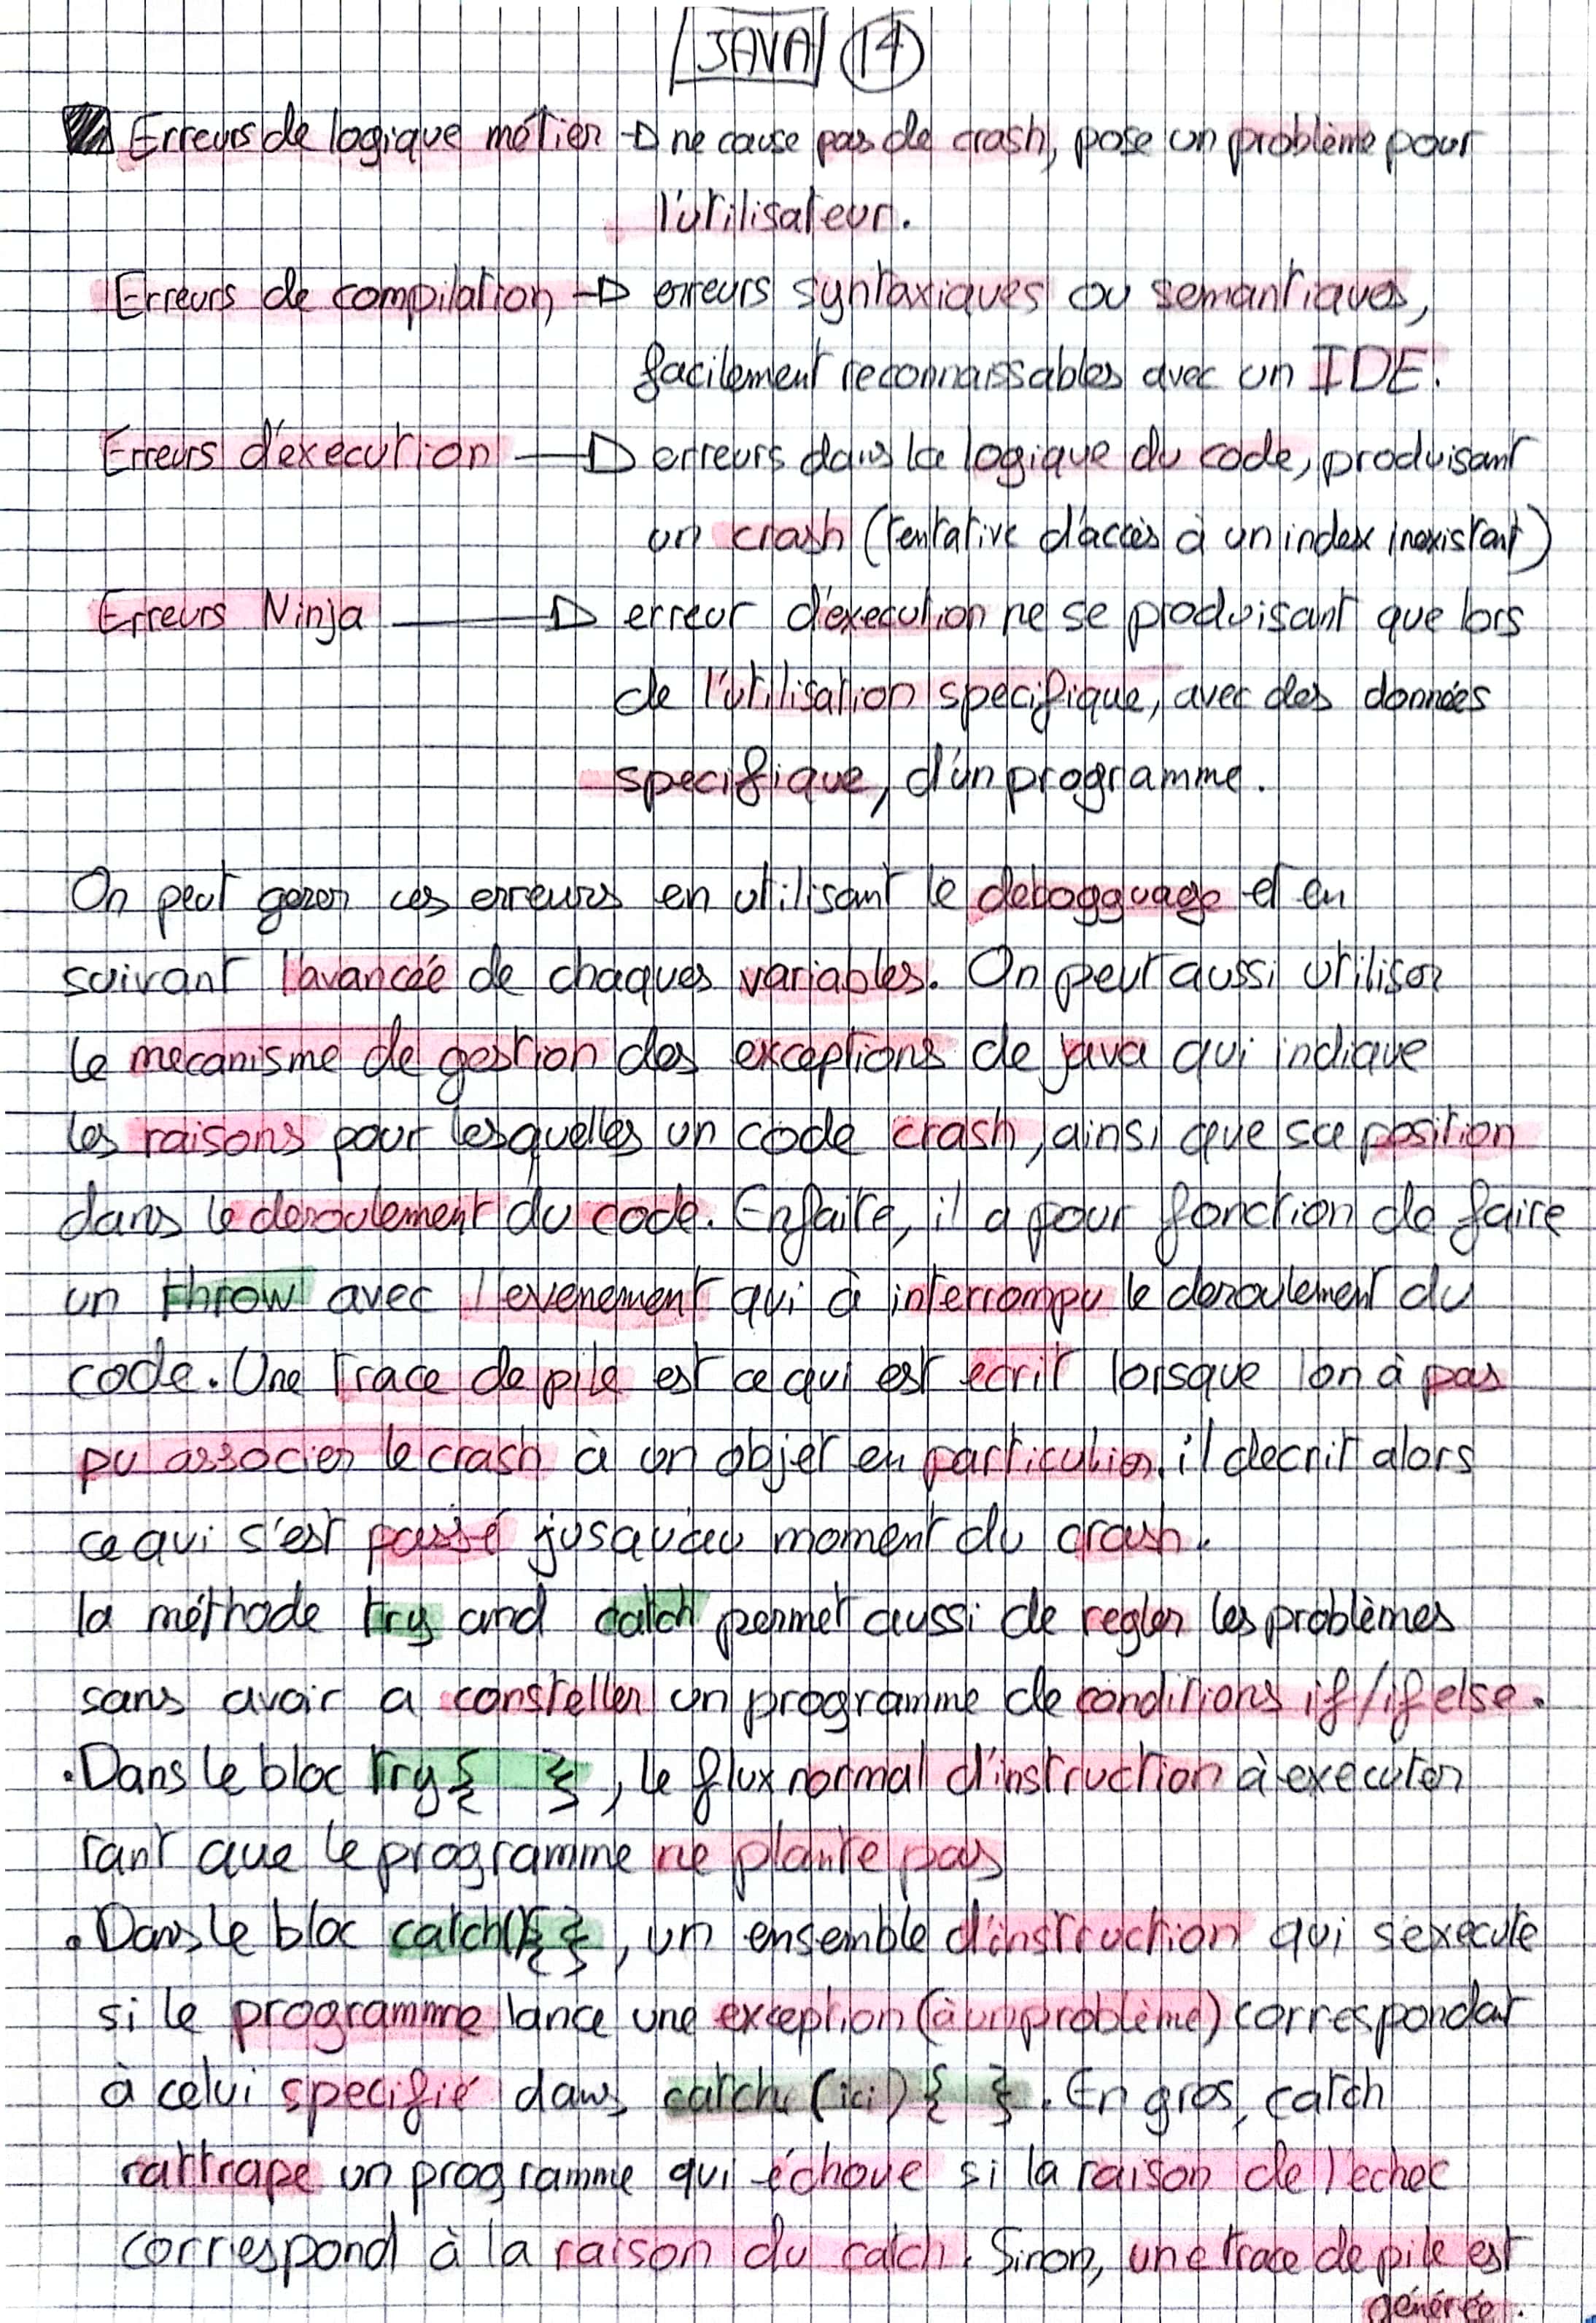 JAVA 14
Erreurs de logique métier → ne cause pas de crash, pose un problème pour
l'utilisateur.
Erreurs de compilation → erreurs syntaxiques ou semantiques,
facilement reconnaissables avec un IDE.
Erreurs d'execution → erreurs dans la logique du code, produisant
un crash (tentative d'accès à un index inexistant)
Erreurs Ninja → erreur d'execution ne se produisant que lors
de l'utilisation specifique, avec des données
specifique, d'un programme.
On peut gerer ces erreurs en utilisant le debogguage et en
suivant l'avancée de chaques variables. On peut aussi utiliser
le mecanisme de gestion des exceptions de java qui indique
les raisons pour lesquelles un code crash, ainsi que sa position
dans le deroulement du code. Enfaite, il a pour fonction de faire
un throw avec l'evenement qui à interrompu le deroulement du
code. Une trace de pile est ce qui est ecrit lorsque l'on à pas
pu associer le crash à un objet en particulier, il decrit alors
ce qui s'est passé jusqu'au moment du crash.
la méthode try and catch permet aussi de regler les problèmes
sans avoir a consteller un programme de conditions if/if else.
. Dans le bloc try{ }, le flux normal d'instruction à executer
tant que le programme ne plante pas
. Dans le bloc catch(){ }, un ensemble d'instruction qui s'execute
si le programme lance une exception (à un problème) correspondant
à celui specifié dans catch (ici) { }. En gros, catch
rattrape un programme qui échoue si la raison de l'echec
correspond à la raison du catch. Sinon, une trace de pile est
génerée.